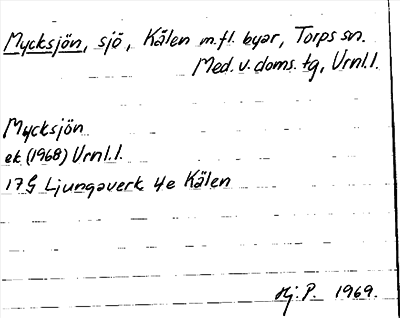 Mycksjön, sjö, Kälen m.fl. byar, Torps sn.
Med. v. doms. tg, Vrnl.l.
Mycksjön
ek (1968) Vrnl.l.
17G Ljungaverk 4e Kälen
Hj. P. 1969.